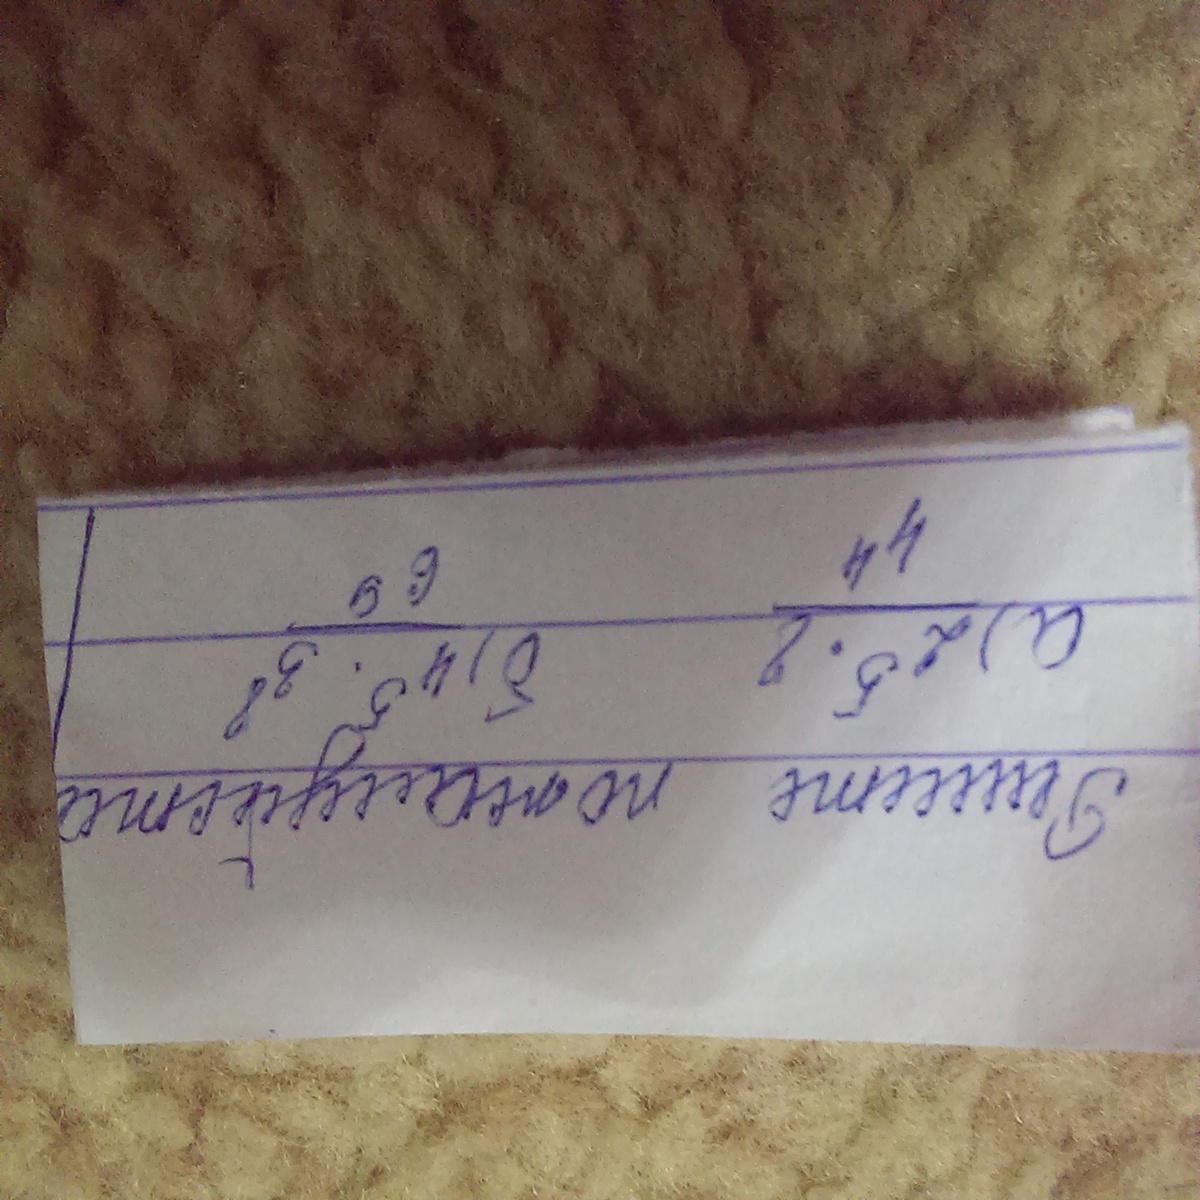 Решите пожалуйста
а) 2⁵·2 б) 4⁵·3⁸
4⁴ 6⁹